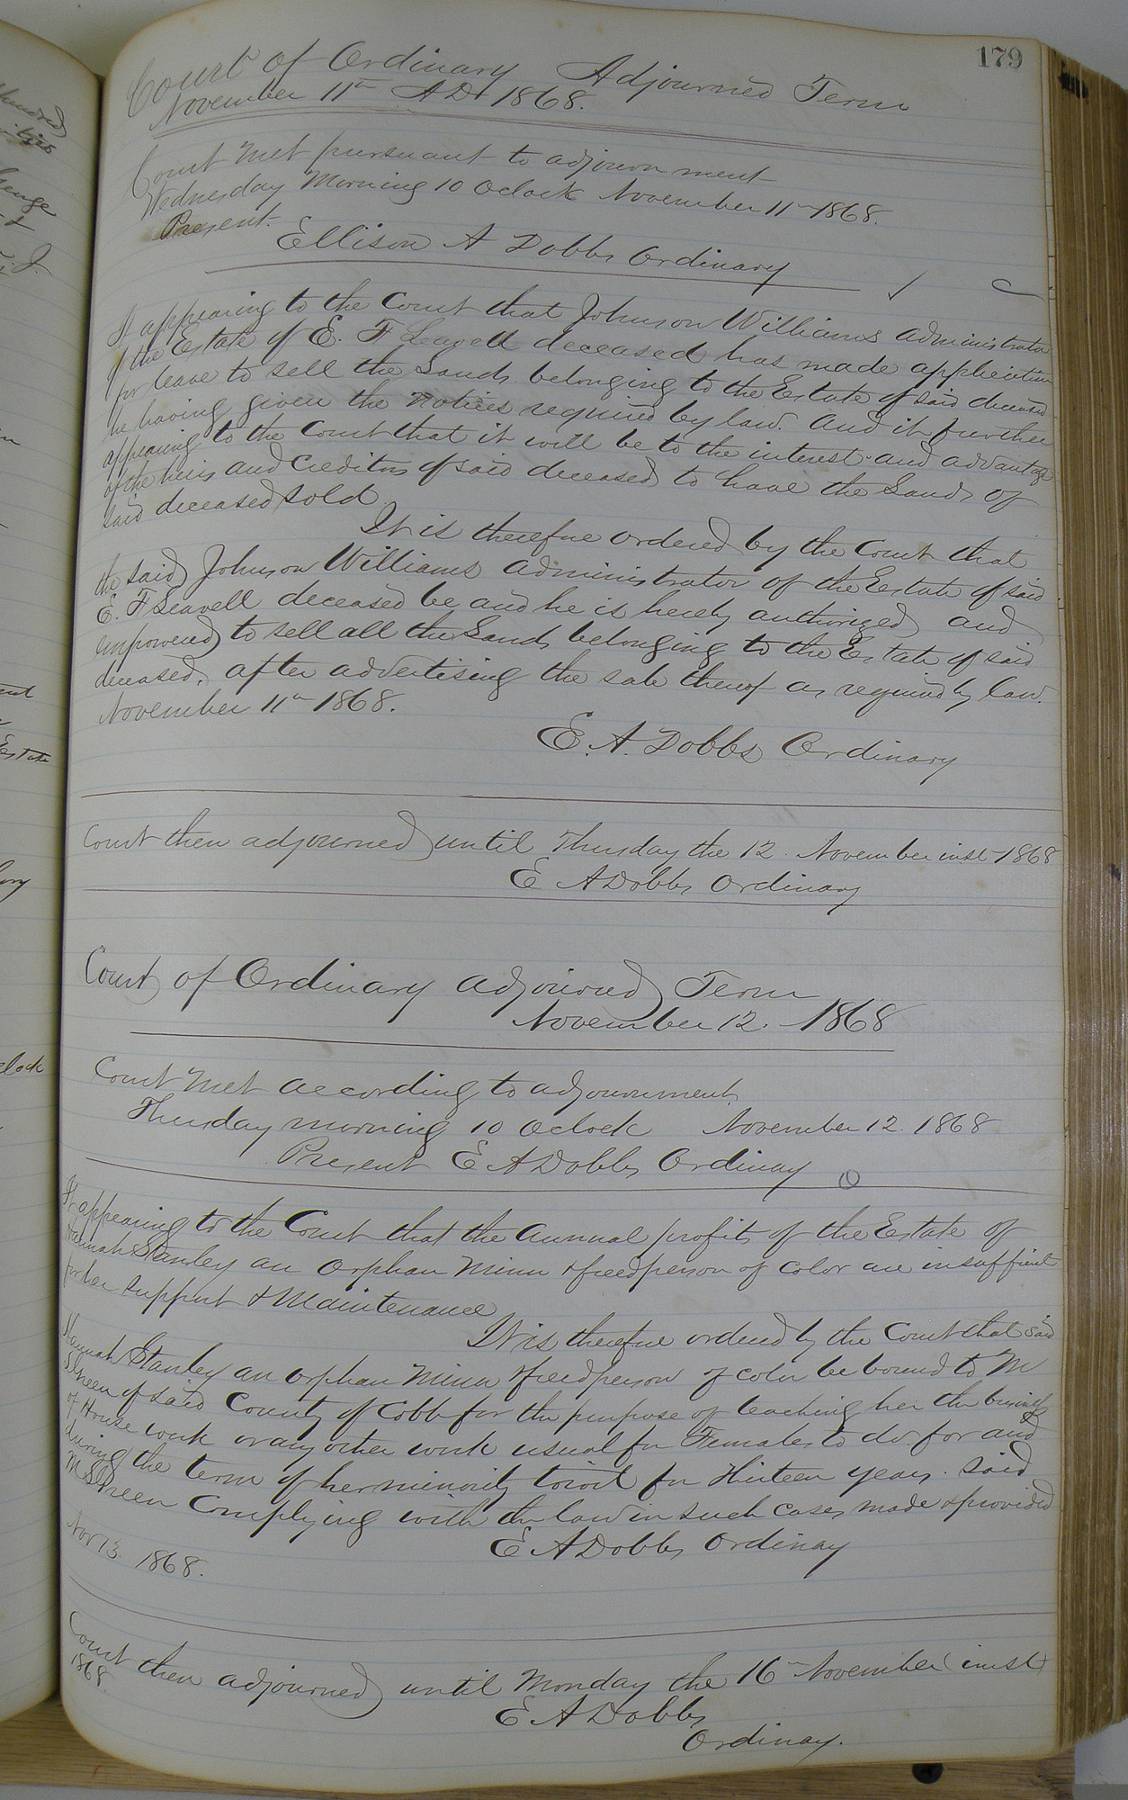 179
Court of Ordinary Adjourned Term
November 11th AD 1868.
Court Met pursuant to adjournment
Wednesday Morning 10 Oclock November 11th 1868.
Present.
Ellison A Dobbs Ordinary
It appearing to the Court that Johnson Williams administrator
of the Estate of E. F Leavell deceased has made application
for leave to sell the Lands belonging to the Estate of said deceased
he having given the notices required by law. And it further
appearing to the Court that it will be to the interest and advantage
of the heirs and Creditors of said deceased to have the Lands of
said deceased sold
It is therefore ordered by the Court that
the said Johnson Williams administrator of the Estate of said
E. F Leavell deceased be, and he is hereby authorized and
empowered to sell all the Lands belonging to the Estate of said
deceased, after advertising the sale thereof as required by law.
November 11th 1868.
E. A. Dobbs Ordinary
Court then adjourned until Thursday the 12 November inst 1868
E A Dobbs Ordinary
Court of Ordinary adjourned Term
November 12. 1868
Court Met according to adjournment
Thursday morning 10 Oclock November 12. 1868
Present E A Dobbs Ordinary
It appearing to the Court that the annual profits of the Estate of
Hannah Stanley an Orphan Minor & freedperson of color are insufficient
for her support & Maintenance
It is therefore ordered by the Court that said
Hannah Stanley an orphan Minor & freedperson of color be bound to M
Sheen of said County of Cobb for the purpose of teaching her the business
of House work or any other work usual for Females to do for and
during the term of her minority towit for thirteen years. Said
M Sheen Complying with the law in such cases made & provided
E A Dobbs Ordinary
Nov 13. 1868.
Court then adjourned until Monday the 16th November inst
1868
E A Dobbs
Ordinary.